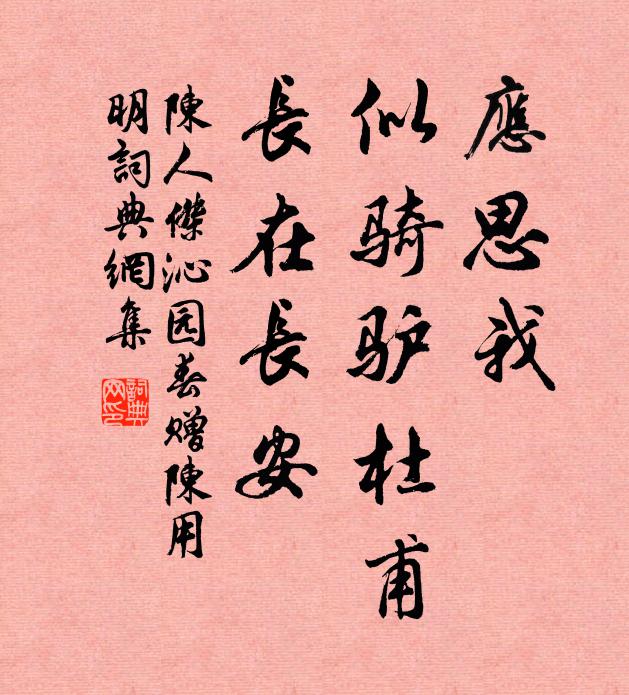 應思我
似骑驴杜甫
長在長安
陳人傑沁园春赠陳用
明詞典網集
詞典
网印